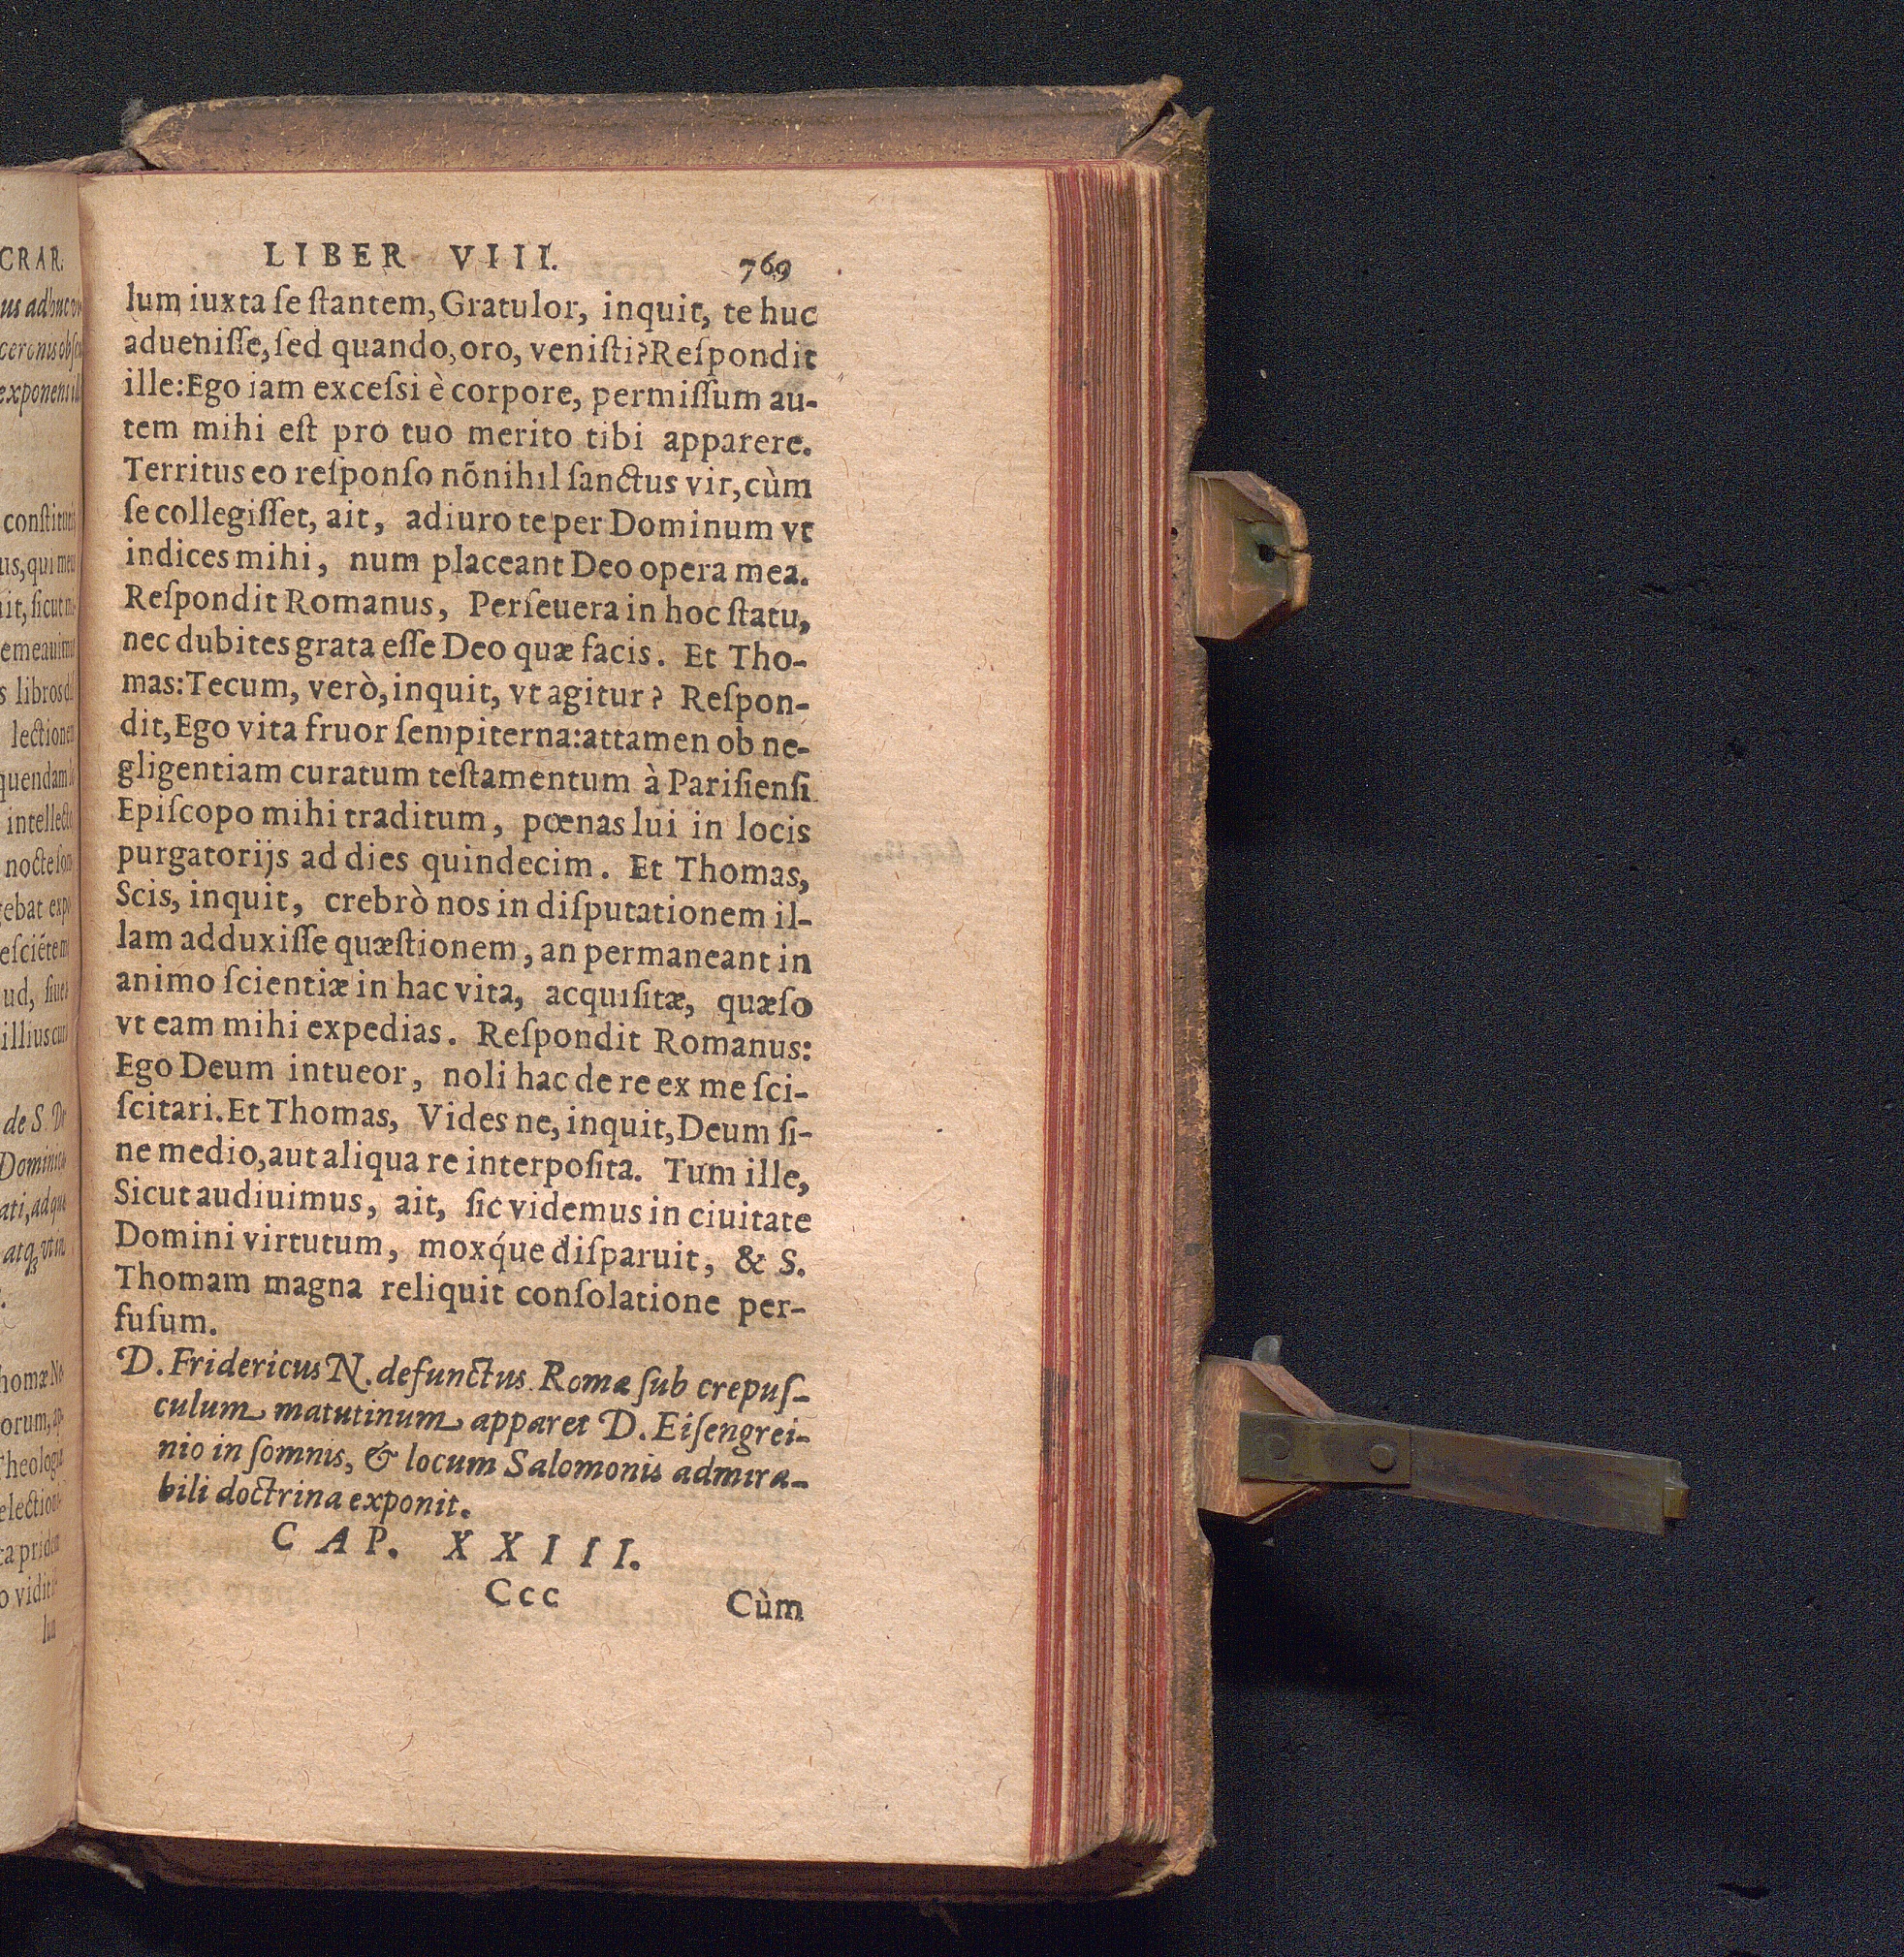 LIBER VIII. 769
lum iuxta ſe ſtantem, Gratulor, inquit, te huc
adueniſſe, ſed quando, oro, veniſti? Reſpondit
ille: Ego iam exceſsi è corpore, permiſſum au-
tem mihi eſt pro tuo merito tibi apparere.
Territus eo reſponſo nõnihil ſanctus vir, cùm
ſe collegiſſet, ait, adiuro te per Dominum vt
indices mihi, num placeant Deo opera mea.
Reſpondit Romanus, Perſeuera in hoc ſtatu,
nec dubites grata eſſe Deo quæ facis. Et Tho-
mas: Tecum, verò, inquit, vt agitur? Reſpon-
dit, Ego vita fruor ſempiterna: attamen ob ne-
gligentiam curatum teſtamentum à Pariſienſi
Epiſcopo mihi traditum, pœnas lui in locis
purgatorijs ad dies quindecim. Et Thomas,
Scis, inquit, crebrò nos in diſputationem il-
lam adduxiſſe quæſtionem, an permaneant in
animo ſcientiæ in hac vita, acquiſitæ, quæſo
vt eam mihi expedias. Reſpondit Romanus:
Ego Deum intueor, noli hac de re ex me ſci-
ſcitari. Et Thomas, Vides ne, inquit, Deum ſi-
ne medio, aut aliqua re interpoſita. Tum ille,
Sicut audiuimus, ait, ſic videmus in ciuitate
Domini virtutum, moxq́ue diſparuit, & S.
Thomam magna reliquit conſolatione per-
fuſum.
D. Fridericus N. defunctus Romæ ſub crepuſ-
culum matutinum apparet D. Eiſengrei-
nio in ſomnis, & locum Salomonis admira-
bili doctrina exponit.
CAP. XXIII.
Ccc Cùm